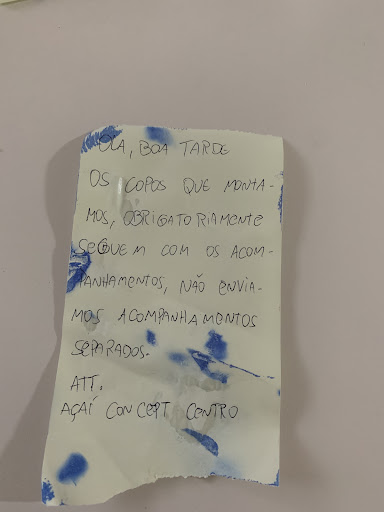 OLÁ, BOA TARDE
OS COPOS QUE MONTA-
MOS, OBRIGATORIAMENTE
SEGUEM COM OS ACOM-
PANHAMENTOS, NÃO ENVIA-
MOS ACOMPANHAMENTOS
SEPARADOS.
ATT.
AÇAÍ CONCEPT CENTRO